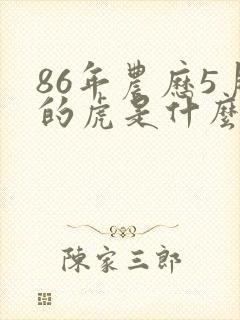 86年農歷5月
的虎是什麼
陳家三郎